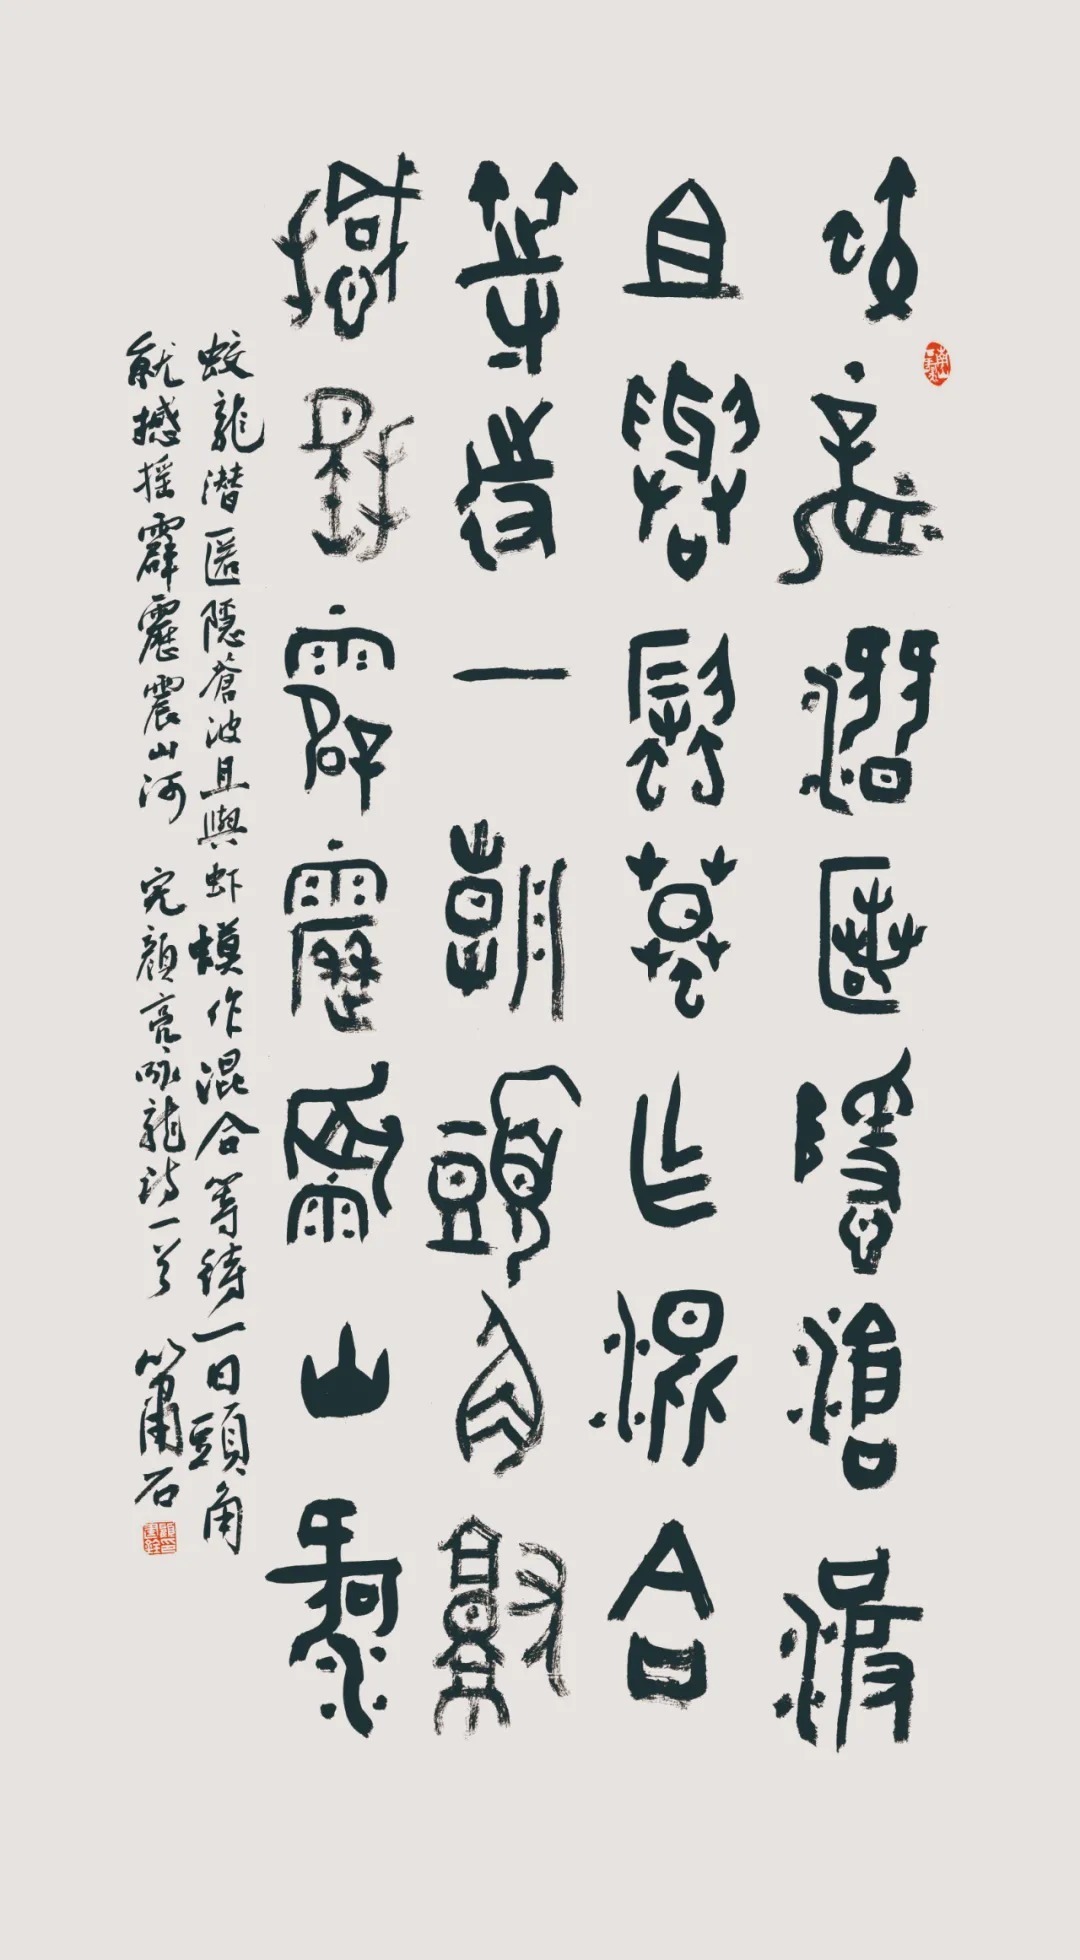 蛟龍潛匿隱蒼波
且與蝦蟆作混合
等待一朝頭角就
撼搖霹靂震山河
蛟龍潜匿隱蒼波且與虾蟆作混合等待一日頭角
就撼摇霹靂震山河 完顔亮咏龍詩一首 簫石